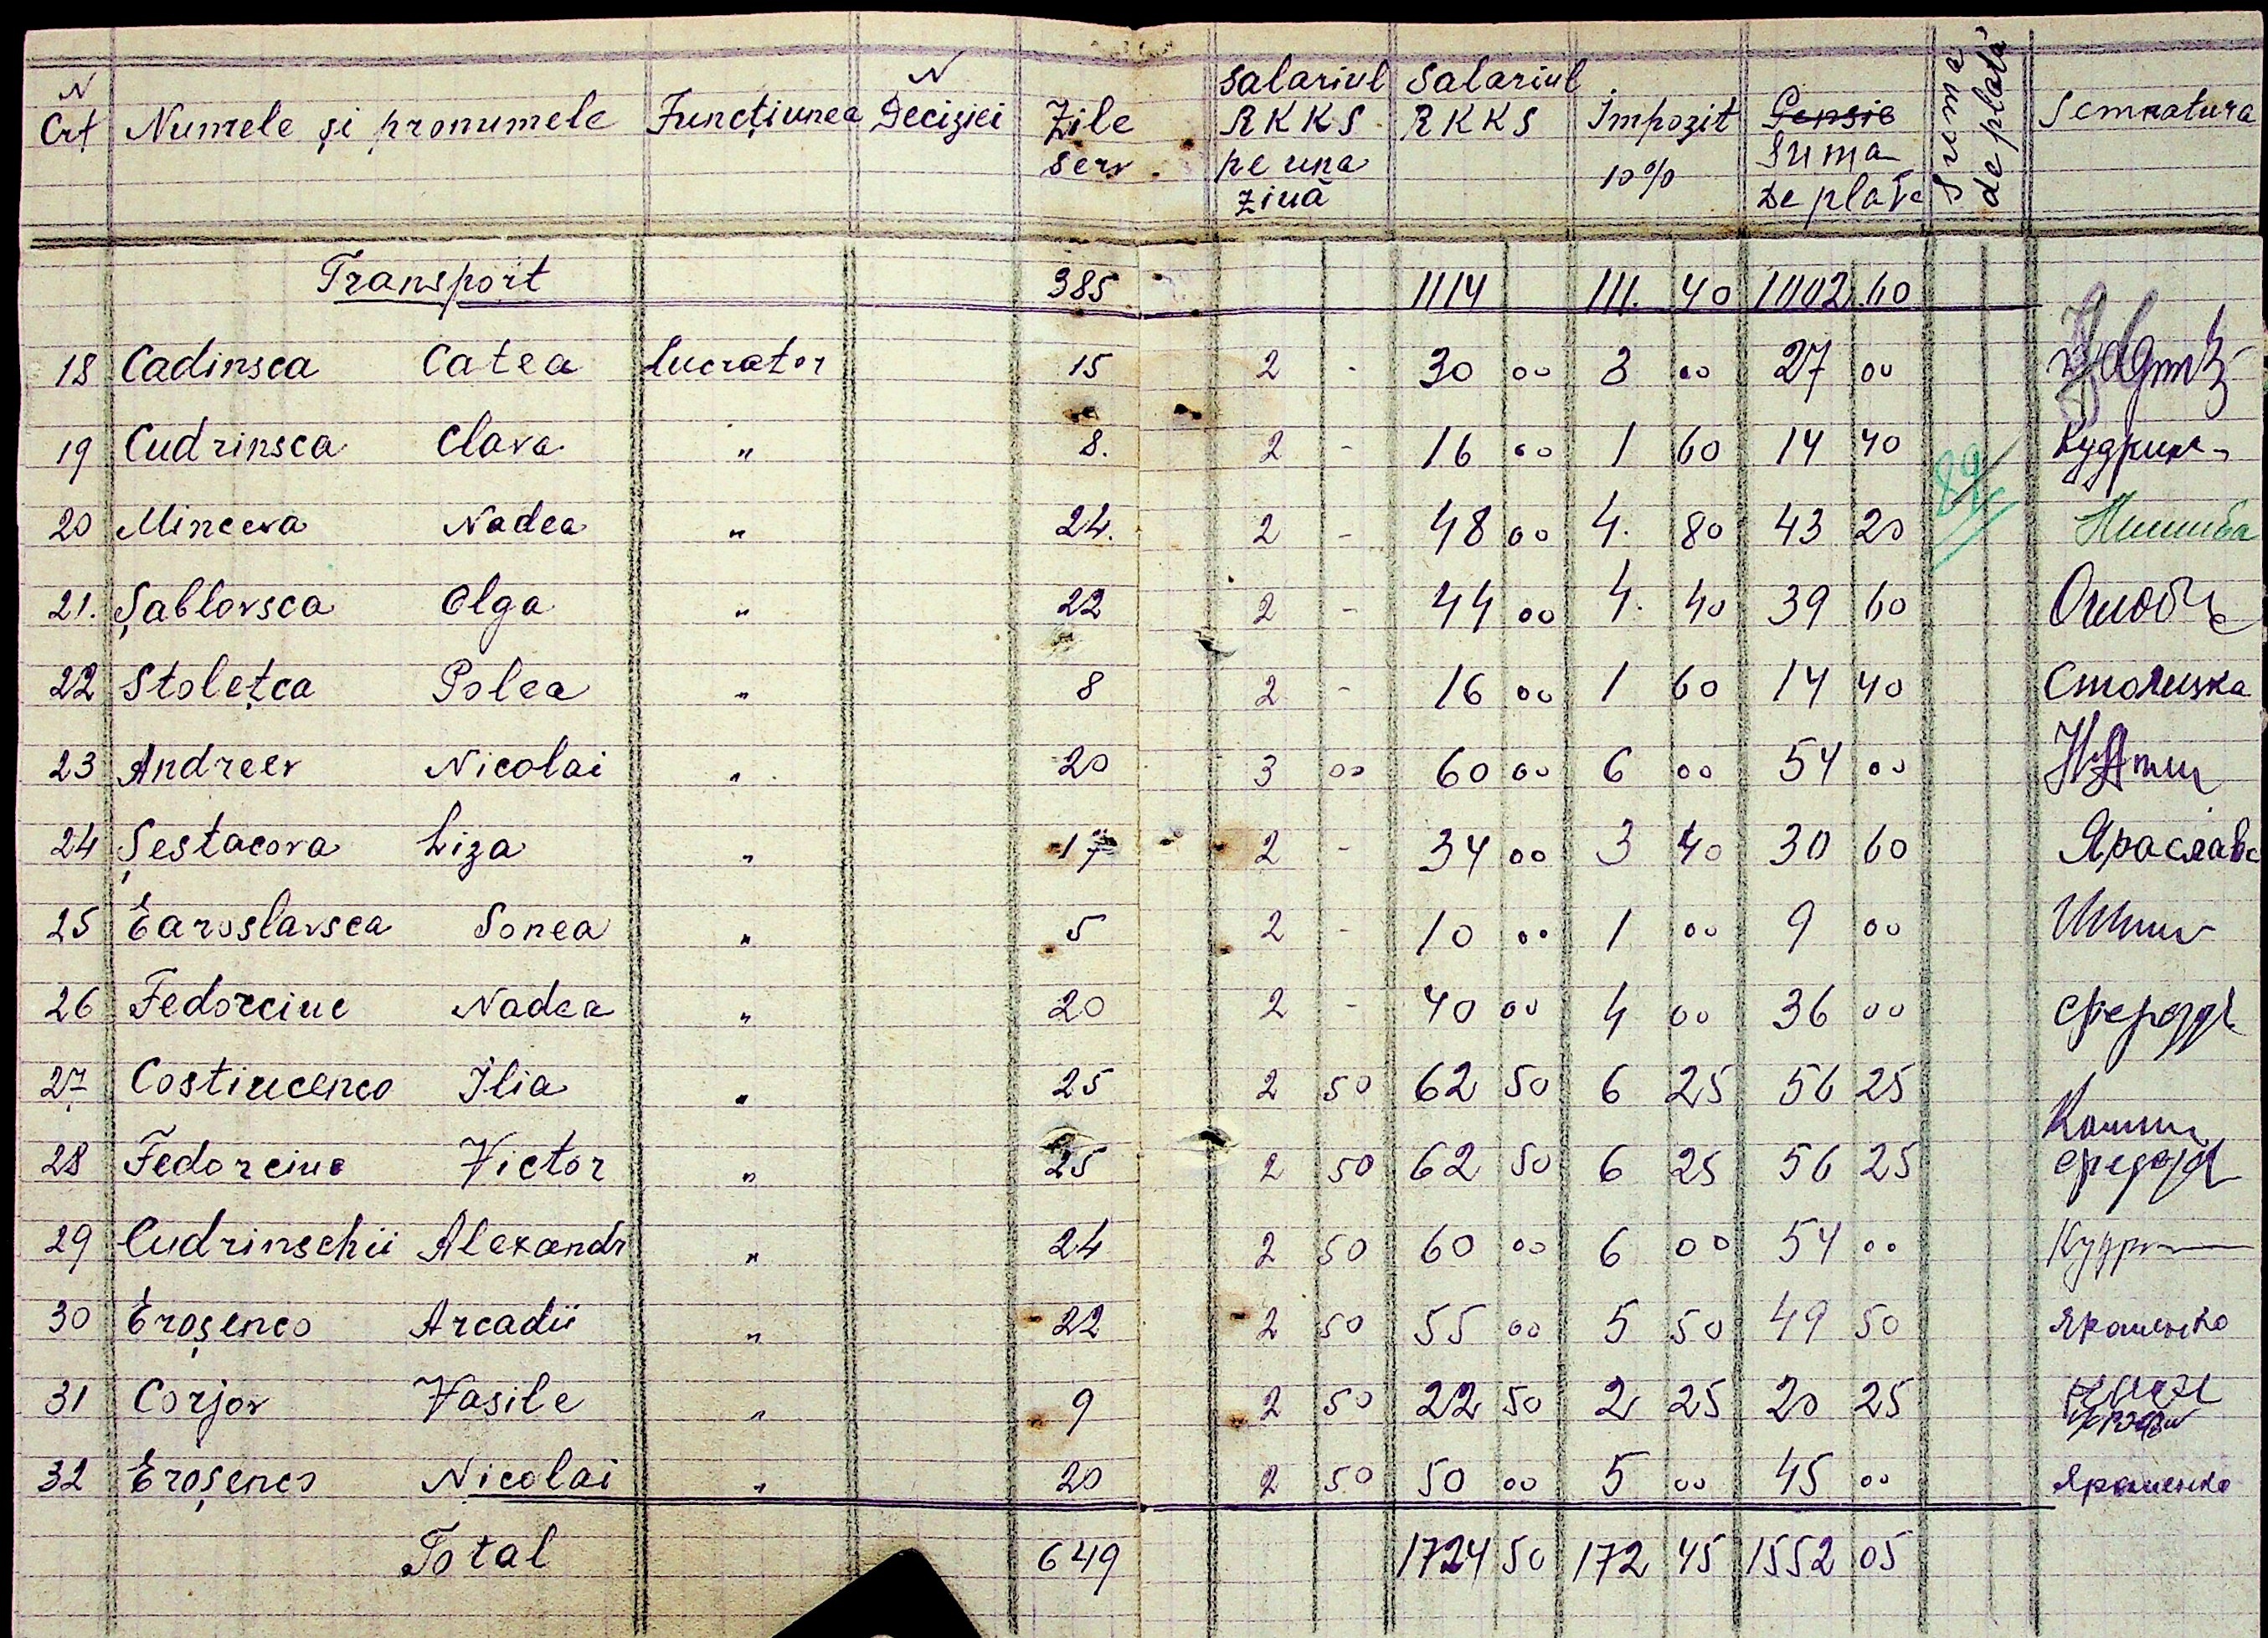 N Crt Numele și pronumele Funcțiunea N Deciziei Zile serv. Salariul RKKS pe una ziuă Salariul RKKS Impozit 10% Pensie Suma de plată Suma de plată Semnatura
Transport 385 1114 111. 40 1002.60
18 Cadinsca Catea Lucrator 15 2 - 30 00 3 00 27 00
19 Cudrinsca Clava " 8. 2 - 16 00 1 60 14 40 Кудрин
20 Minceva Nadea " 24. 2 - 48 00 4. 80 43 20
21. Șablovsca Olga " 22 2 - 44 00 4. 40 39 60
22 Stolețca Polea " 8 2 - 16 00 1 60 14 40 Столицка
23 Andreev Nicolai " 20 3 00 60 00 6 00 54 00
24 Șestacova Liza " 17 2 - 34 00 3 40 30 60 Ярославс
25 Earoslavsca Sonea " 5 2 - 10 00 1 00 9 00
26 Fedorciuc Nadea " 20 2 - 40 00 4 00 36 00
27 Costiucenco Ilia " 25 2 50 62 50 6 25 56 25
28 Fedorciuc Victor " 25 2 50 62 50 6 25 56 25
29 Cudrinschii Alexandr " 24 2 50 60 00 6 00 54 00 Кудри
30 Eroșenco Arcadii " 22 2 50 55 00 5 50 49 50 Ярошенко
31 Corjov Vasile " 9 2 50 22 50 2 25 20 25
32 Eroșenco Nicolai " 20 2 50 50 00 5 00 45 00 Ярошенко
Total 649 1724 50 172 45 1552 05